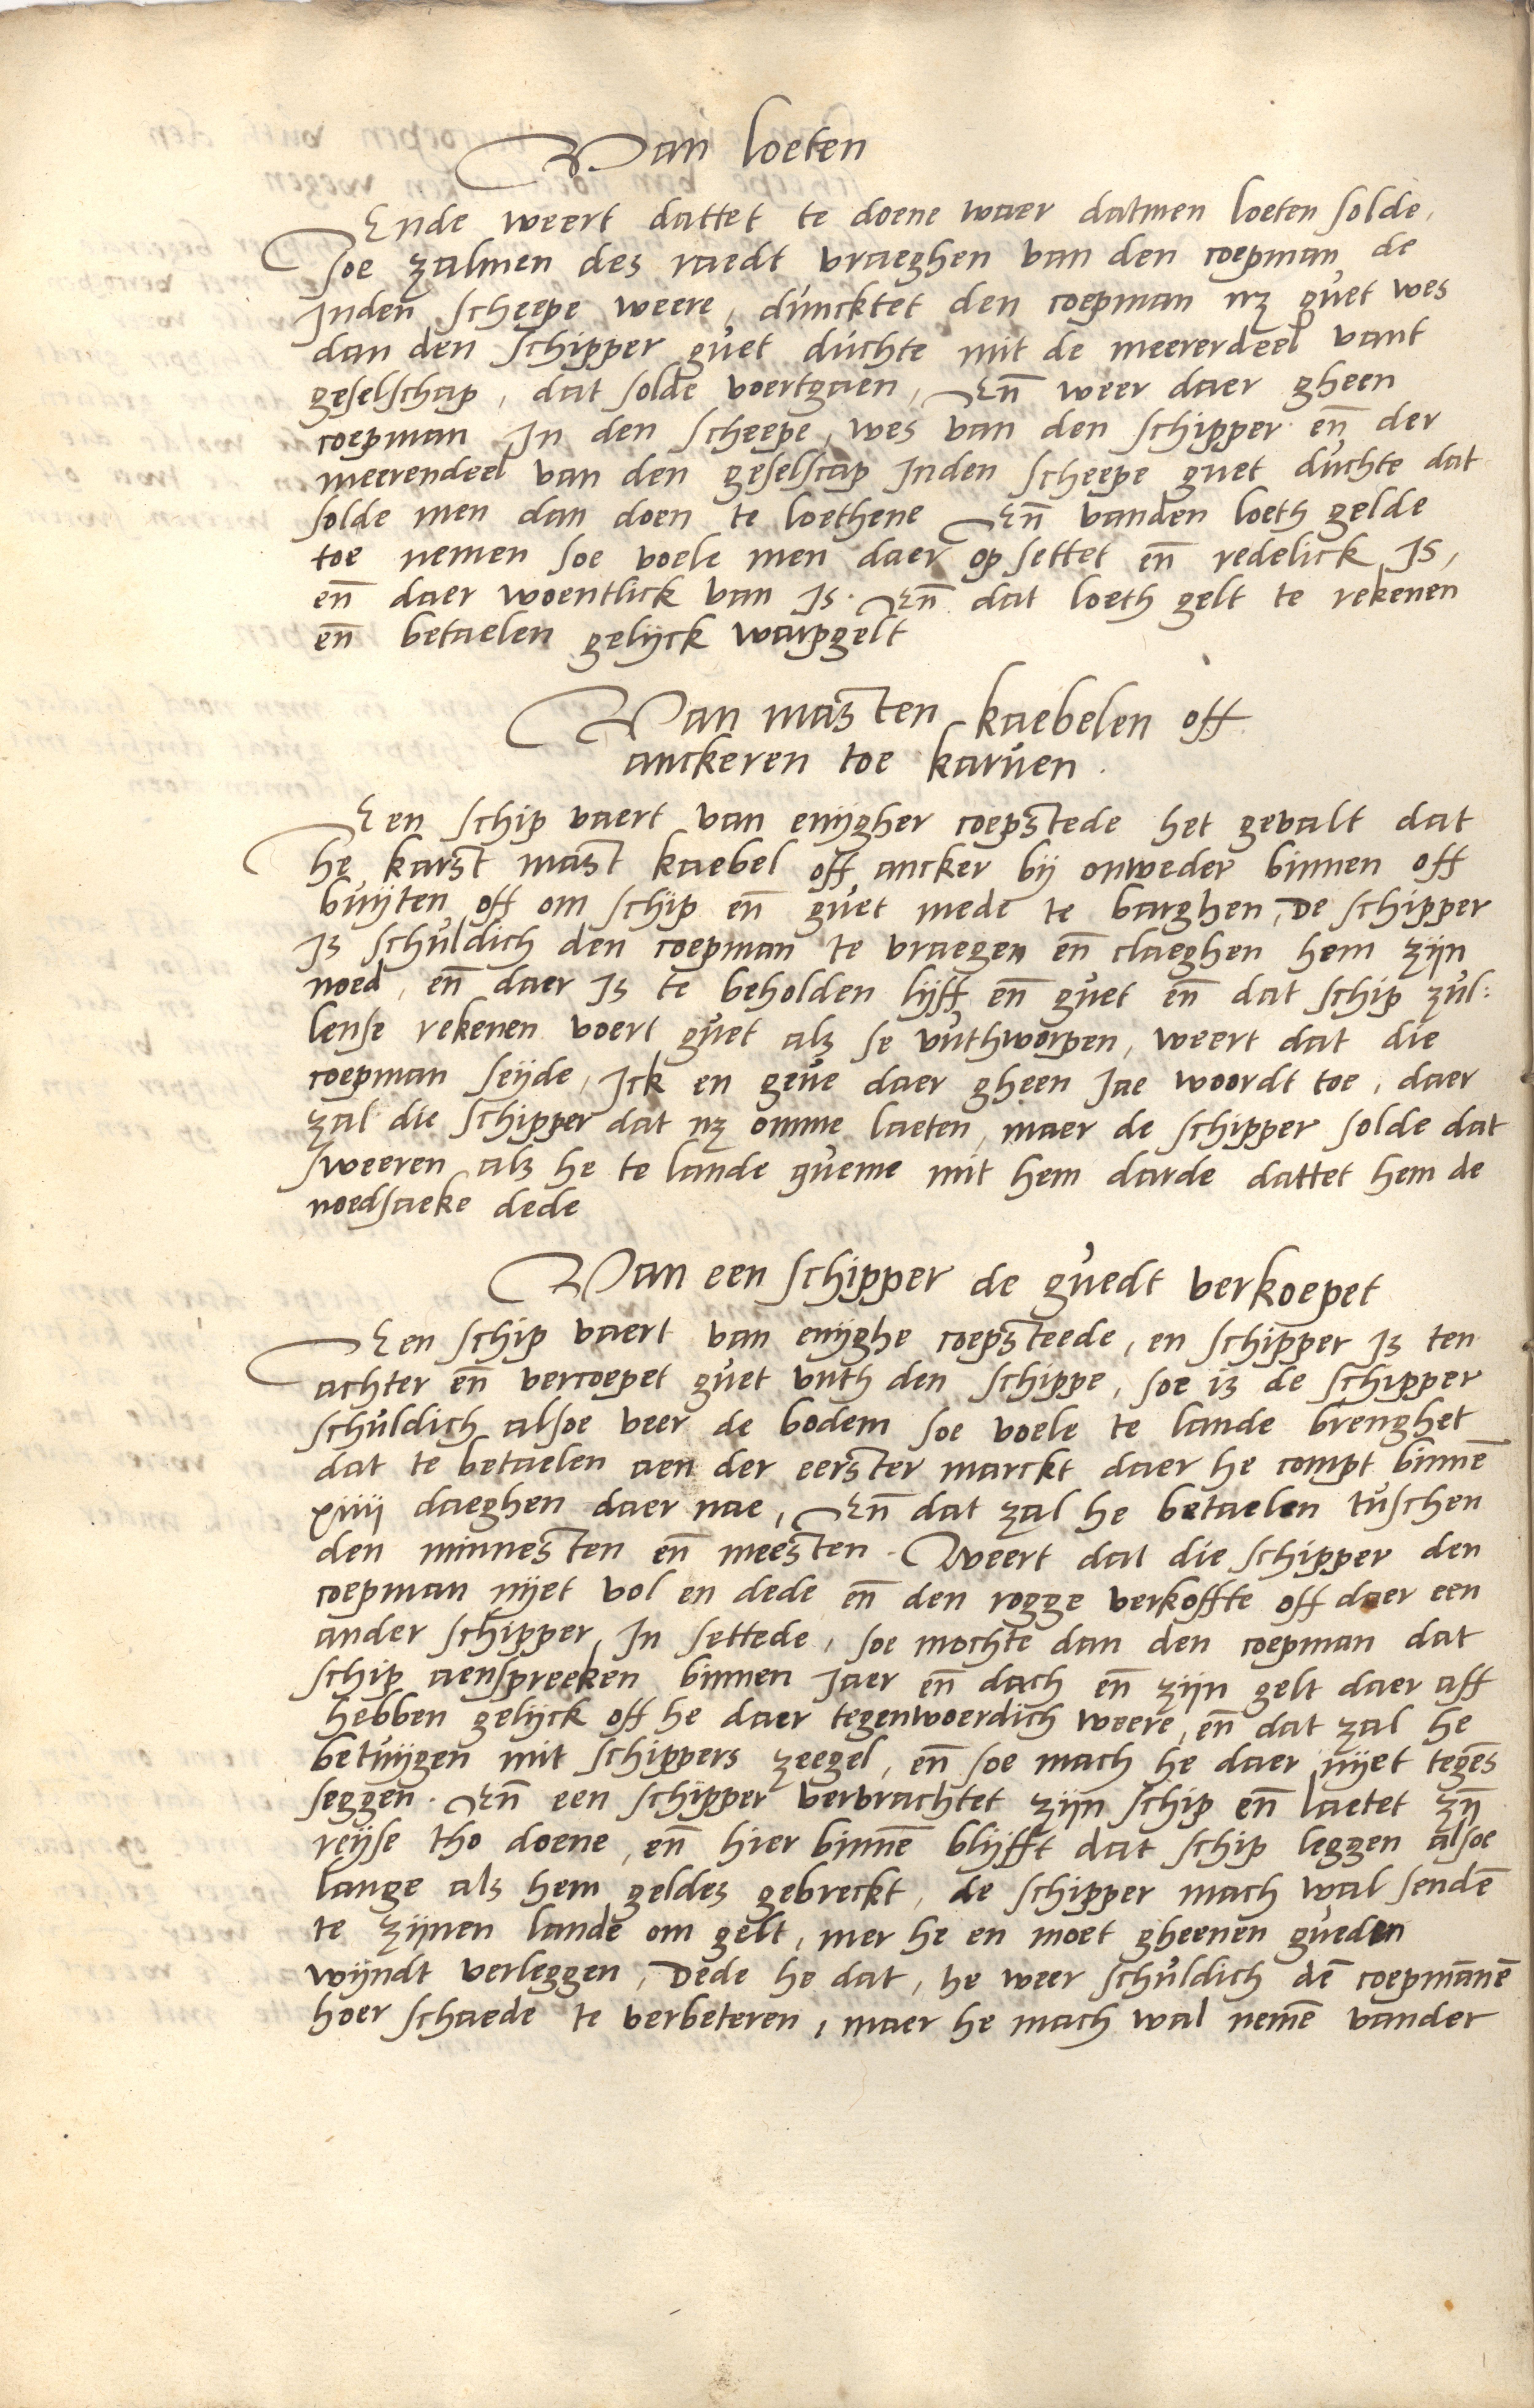 Van loeten
Ende weert dattet te doene waer datmen loeten solde,
soe zalmen des raedt vraeghen van den coepman de
Inden scheepe weere, duncktet den coepman nz guet wes
dan den schipper guet duchte mit de meererdeel vant
geselschap, dat solde voertgaen, En̄ weer daer gheen
coepman In den scheepe, wes van den schipper en̄ der
meerendeel van den geselscap Inden scheepe guet duchte dat
solde men dan doen te loethene En̄ vanden loeth gelde
toe nemen soe voele men daer op settet en̄ redelick Is,
en̄ daer woentlick van Is. En̄ dat loeth gelt te rekenen
en̄ betaelen gelijck warpgelt
Van masten kaebelen off
anckeren toe karuen.
Een schip vaert van enijgher coepstede het gevalt dat
he karst mast kaebel off ancker bij onweder binnen off
buijten off om schip en̄ guet mede te barghen, De schipper
Is schuldich den coepman te vraegen en̄ claeghen hem zijn
noed, en̄ daer Is te beholden lijff en̄ guet en̄ dat schip zul:
lense rekenen voert guet als se vuthworpen, weert dat die
coepman seijde, Ick en geue daer gheen Jae woordt toe, daer
zal die schipper dat nz omme laeten, maer de schipper solde dat
sweeren als he te lande queme mit hem darde dattet hem de
noedsaeke dede
Van een schipper de guedt verkoepet
Een schip vaert van enijghe coepsteede, en schipper Is ten
achter en̄ vercoepet guet vuth den schippe, soe is de schipper
schuldich alsoe veer de bodem soe voele te lande brenghet
dat te betaelen aen der eerster marckt daer he compt binnē
xiiij daeghen daer nae, En̄ dat zal he betaelen tuschen
den minnesten en̄ meesten. Weert dat die schipper den
coepman nijet vol en dede en̄ den rogge verkoffte off daer een
ander schipper In settede, soe mochte dan den coepman dat
schip aenspreeken binnen Jaer en̄ dach en̄ zijn gelt daer aff
hebben gelijck off he daer tegenwoerdich weere, en̄ dat zal he
betuijgen mit schippers zeegel, en̄ soe mach he daer nijet tegēs
seggen. En̄ een schipper vervrachtet zijn schip en̄ laetet zȳn
reijse tho doene, en̄ hier binnē blijfft dat schip leggen alsoe
lange als hem geldes gebreckt, de schipper mach wal sendē
te zijnen lande om gelt, mer he en moet gheenen gueden
wijndt verleggen, Dede he dat, he weer schuldich dē coepmānē
hoer schaede te verbeteren, maer he mach wal nemē vander